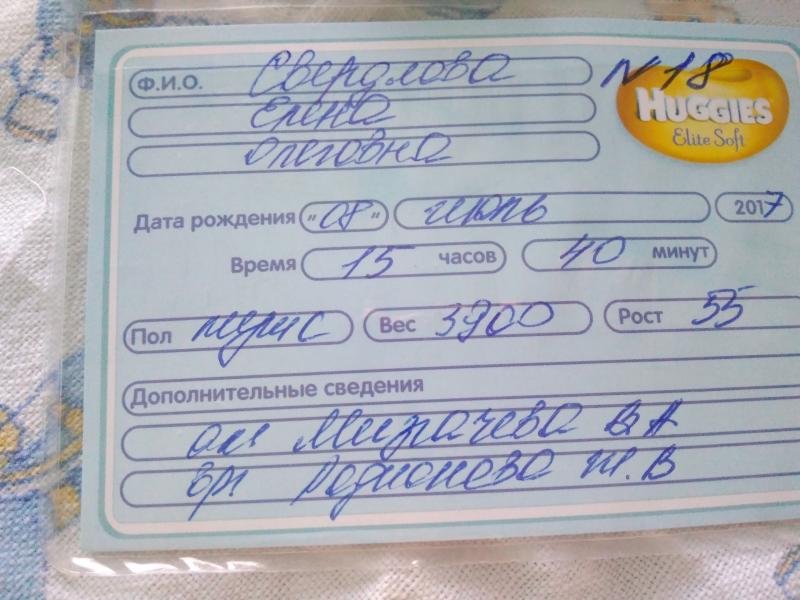 Ф.И.О. Свердлова N 18
HUGGIES
Elite Soft
Елена
Олеговна
Дата рождения "08" июль 2017
Время 15 часов 40 минут
Пол муж Вес 3900 Рост 55
Дополнительные сведения
ак В А
вр Родионова В